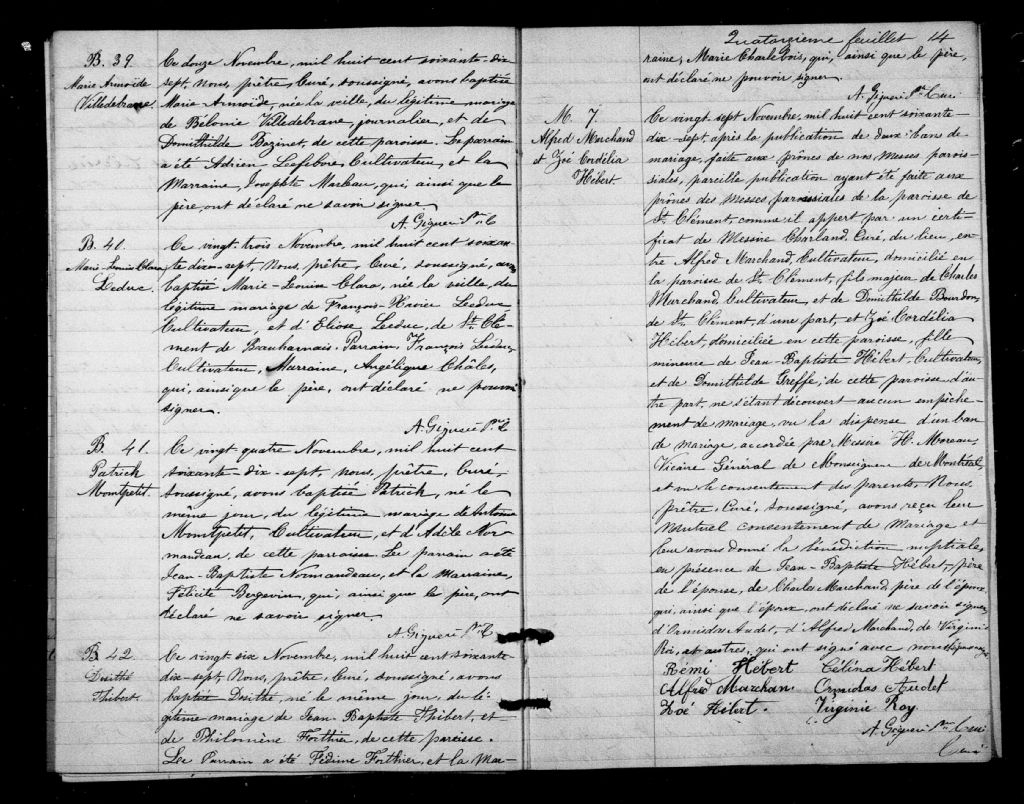 B. 39.
Marie Arnoïde
Villedebrane
Ce douze Novembre, mil huit cent soixante-dix
sept, Nous, prêtre, Curé, soussigné, avons baptisé
Marie Arnoïde, née la veille, du légitime mariage
de Bélonie Villedebrane, journalier, et de
Domithilde Bazinet, de cette paroisse. Le parrain
a été Adrien Lefebvre, Cultivateur, et la
Marraine, Josephte Marleau, qui, ainsi que le
père, ont déclaré ne savoir signer.
A. Giguere Ptre C
B. 40.
Marie-Louise Clara
Leduc.
Ce vingt-trois Novembre, mil huit cent soixan-
te-dix-sept, Nous, prêtre, Curé, soussigné, avons
baptisé Marie-Louise Clara, née la veille, du
légitime mariage de François-Xavier Leduc
Cultivateur, et d'Elise Leduc, de St. Clé-
ment de Beauharnais. Parrain, François Leduc,
Cultivateur, Marraine, Angélique Châles,
qui, ainsi que le père, ont déclaré ne pouvoir
signer.
A. Giguere Ptre C
B. 41.
Patrick
Montpetit.
Ce vingt quatre Novembre, mil huit cent
soixante-dix-sept, nous, prêtre, Curé,
soussigné, avons baptisé Patrick, né le
même jour, du légitime mariage de Antoine
Montpetit, Cultivateur, et d'Adèle Nor-
mandeau, de cette parroisse. Le parrain a été
Jean-Baptiste Normandeau, et la marraine,
Félicité Bergevin, qui, ainsi que le père, ont
déclaré ne savoir signer.
A. Giguere Ptre C
B 42
Dosithé
Thibert.
Ce vingt six Novembre, mil huit cent soixante-
dix-sept Nous, prêtre, Curé, soussigné, avons
baptisé Dosithé, né le même jour, du lé-
gitime mariage de Jean-Baptiste Thibert, et
de Philomène Forthier, de cette paroisse.
Le Parrain a été Fédime Forthier, et la Mar-
Quatorzieme feuillet 14
raine, Marie Charlebois, qui, ainsi que le père,
ont déclaré ne pouvoir signer.
A. Giguere Ptre Curé
M. 7
Alfred Marchand
et Zoé Cordélia
Hébert.
Ce vingt sept Novembre, mil huit cent soixante-
dix-sept, après la publication de deux bans de
mariage, faite aux prônes de nos Messes parois-
siales, pareille publication ayant été faite aux
prônes des Messes, paroissiales de la paroisse de
St. Clément, comme il appert par un certi-
ficat de Messire Charland, Curé, du lieu, en-
tre Alfred Marchand, Cultivateur, domicilié en
la paroisse de St. Clément, fils majeur de Charles
Marchand, Cultivateur, et de Domithilde Bourdon,
de St. Clément, d'une part, et Zoé Cordélia
Hébert, domiciliée en cette paroisse, fille
mineure de Jean-Baptiste Hébert, Cultivateur,
et de Domithilde Greffe, de cette paroisse d'au-
tre part, ne s'étant découvert aucun empêche-
ment de mariage, vu la dispense d'un ban
de mariage, accordée par Messire H. Moreau,
Vicaire Général de Monseigneur de Montréal,
et vu le consentement des parents, Nous,
Prêtre, Curé, soussigné, avons reçu leur
Mutuel consentement de Mariage et
leur avons donné la bénédiction nuptiale,
en présence de Jean-Baptiste Hébert, père
de l'épouse, de Charles Marchand, père de l'époux,
qui, ainsi que l'époux, ont déclaré ne savoir signer,
d'Ormidas Audet, d'Alfred Marchand, de Virginie
Roi, et autres, qui ont signé avec nous
Rémi Hébert Célina Hébert
Alfred Marchan Ormidas Audet
Zoé Hébert. Virginie Roy
A. Giguere Ptre Curé
Curé